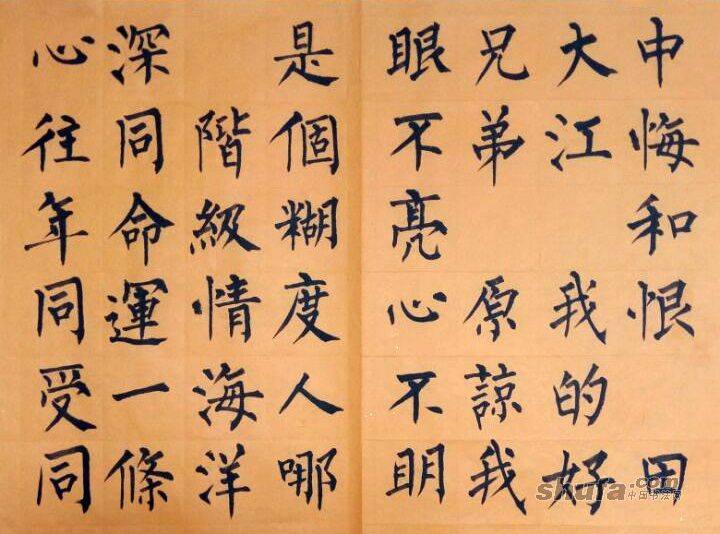 中悔和恨 田
大江 我的好
兄弟 原諒我
眼不亮心不明
是個糊度人哪
階級情海洋
深同命運一條
心往年同受同
shufa.com
中国书法网